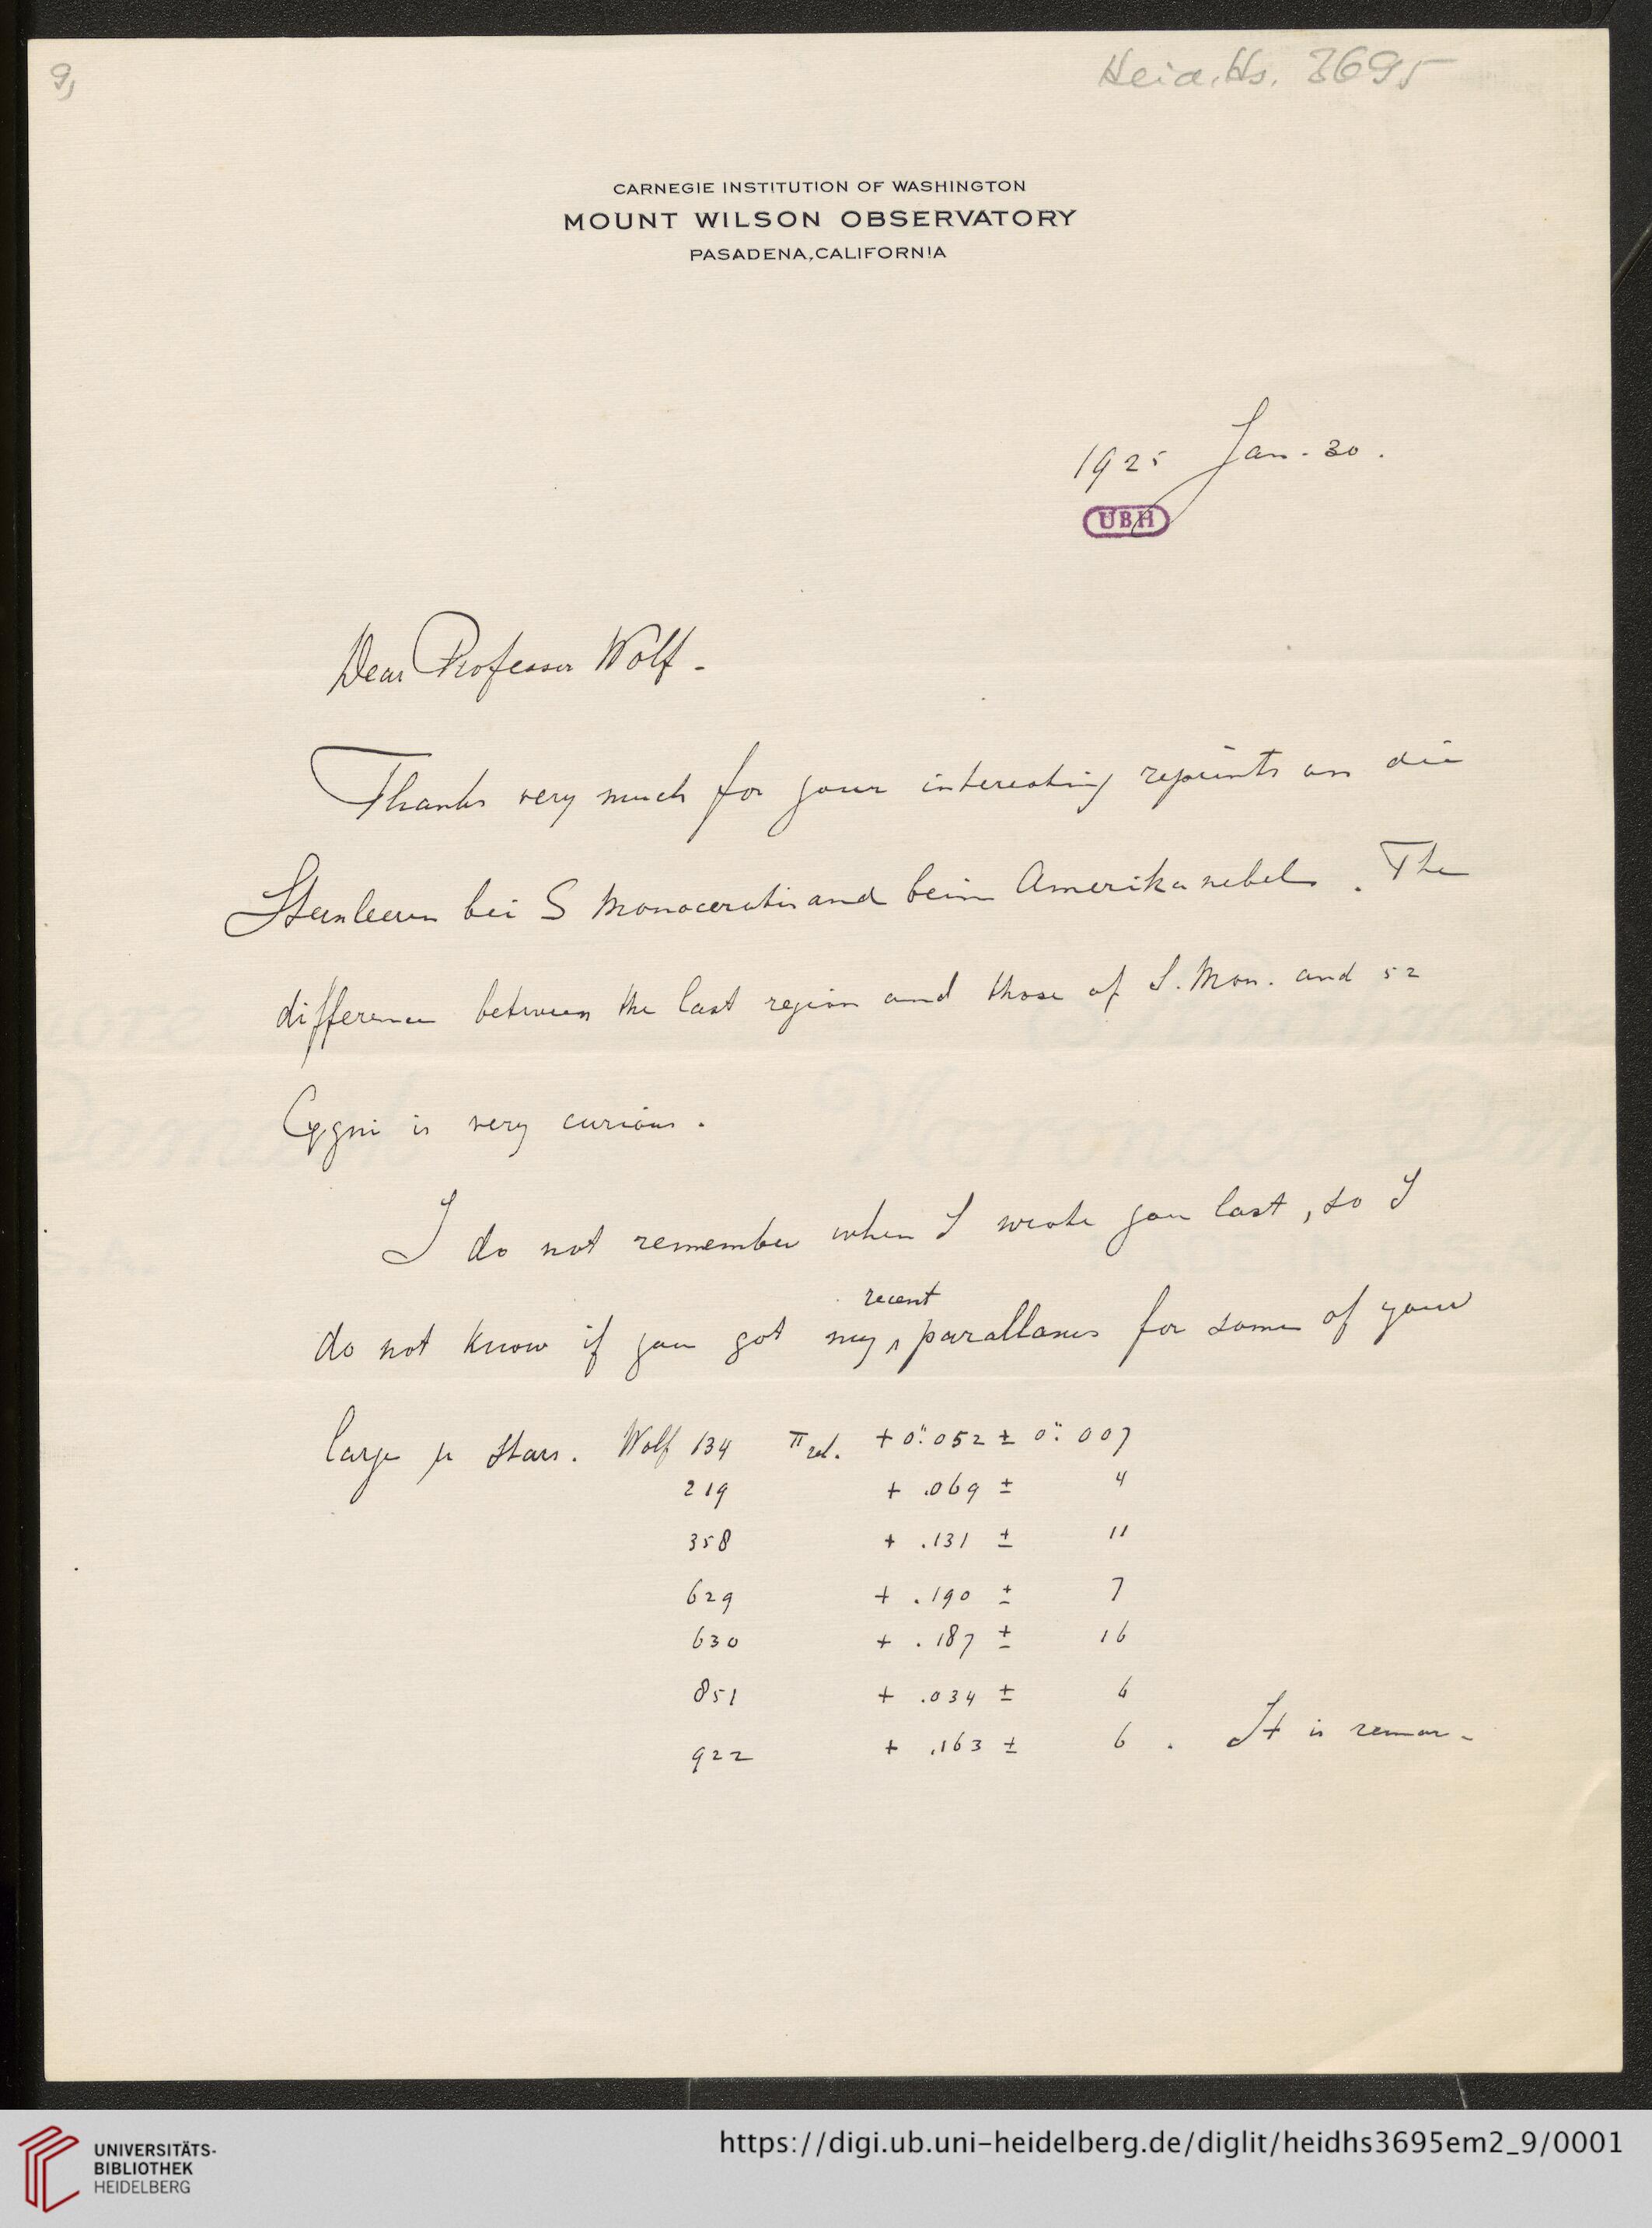 9,
Heid. Hs. 3695
CARNEGIE INSTITUTION OF WASHINGTON
MOUNT WILSON OBSERVATORY
PASADENA, CALIFORNIA
1925 Jan. 30.
UBH
Dear Professor Wolf -
Thanks very much for your interesting reprints on die
Sternleeren bei S Monocerotis and beim Amerikanebel. The
difference between the last region and those of S. Mon. and 52
Cygni is very curious.
I do not remember when I wrote you last, so I
recent
do not know if you got my ‸ parallaxes for some of your
large μ stars. Wolf 134 π rel. + 0".052 ± 0".007
219 + .069 ± 4
358 + .131 ± 11
629 + .190 ± 7
630 + .187 ± 16
851 + .034 ± 6
922 + .163 ± 6. It is remar-
UNIVERSITÄTS-
BIBLIOTHEK
HEIDELBERG
https://digi.ub.uni-heidelberg.de/diglit/heidhs3695em2_9/0001